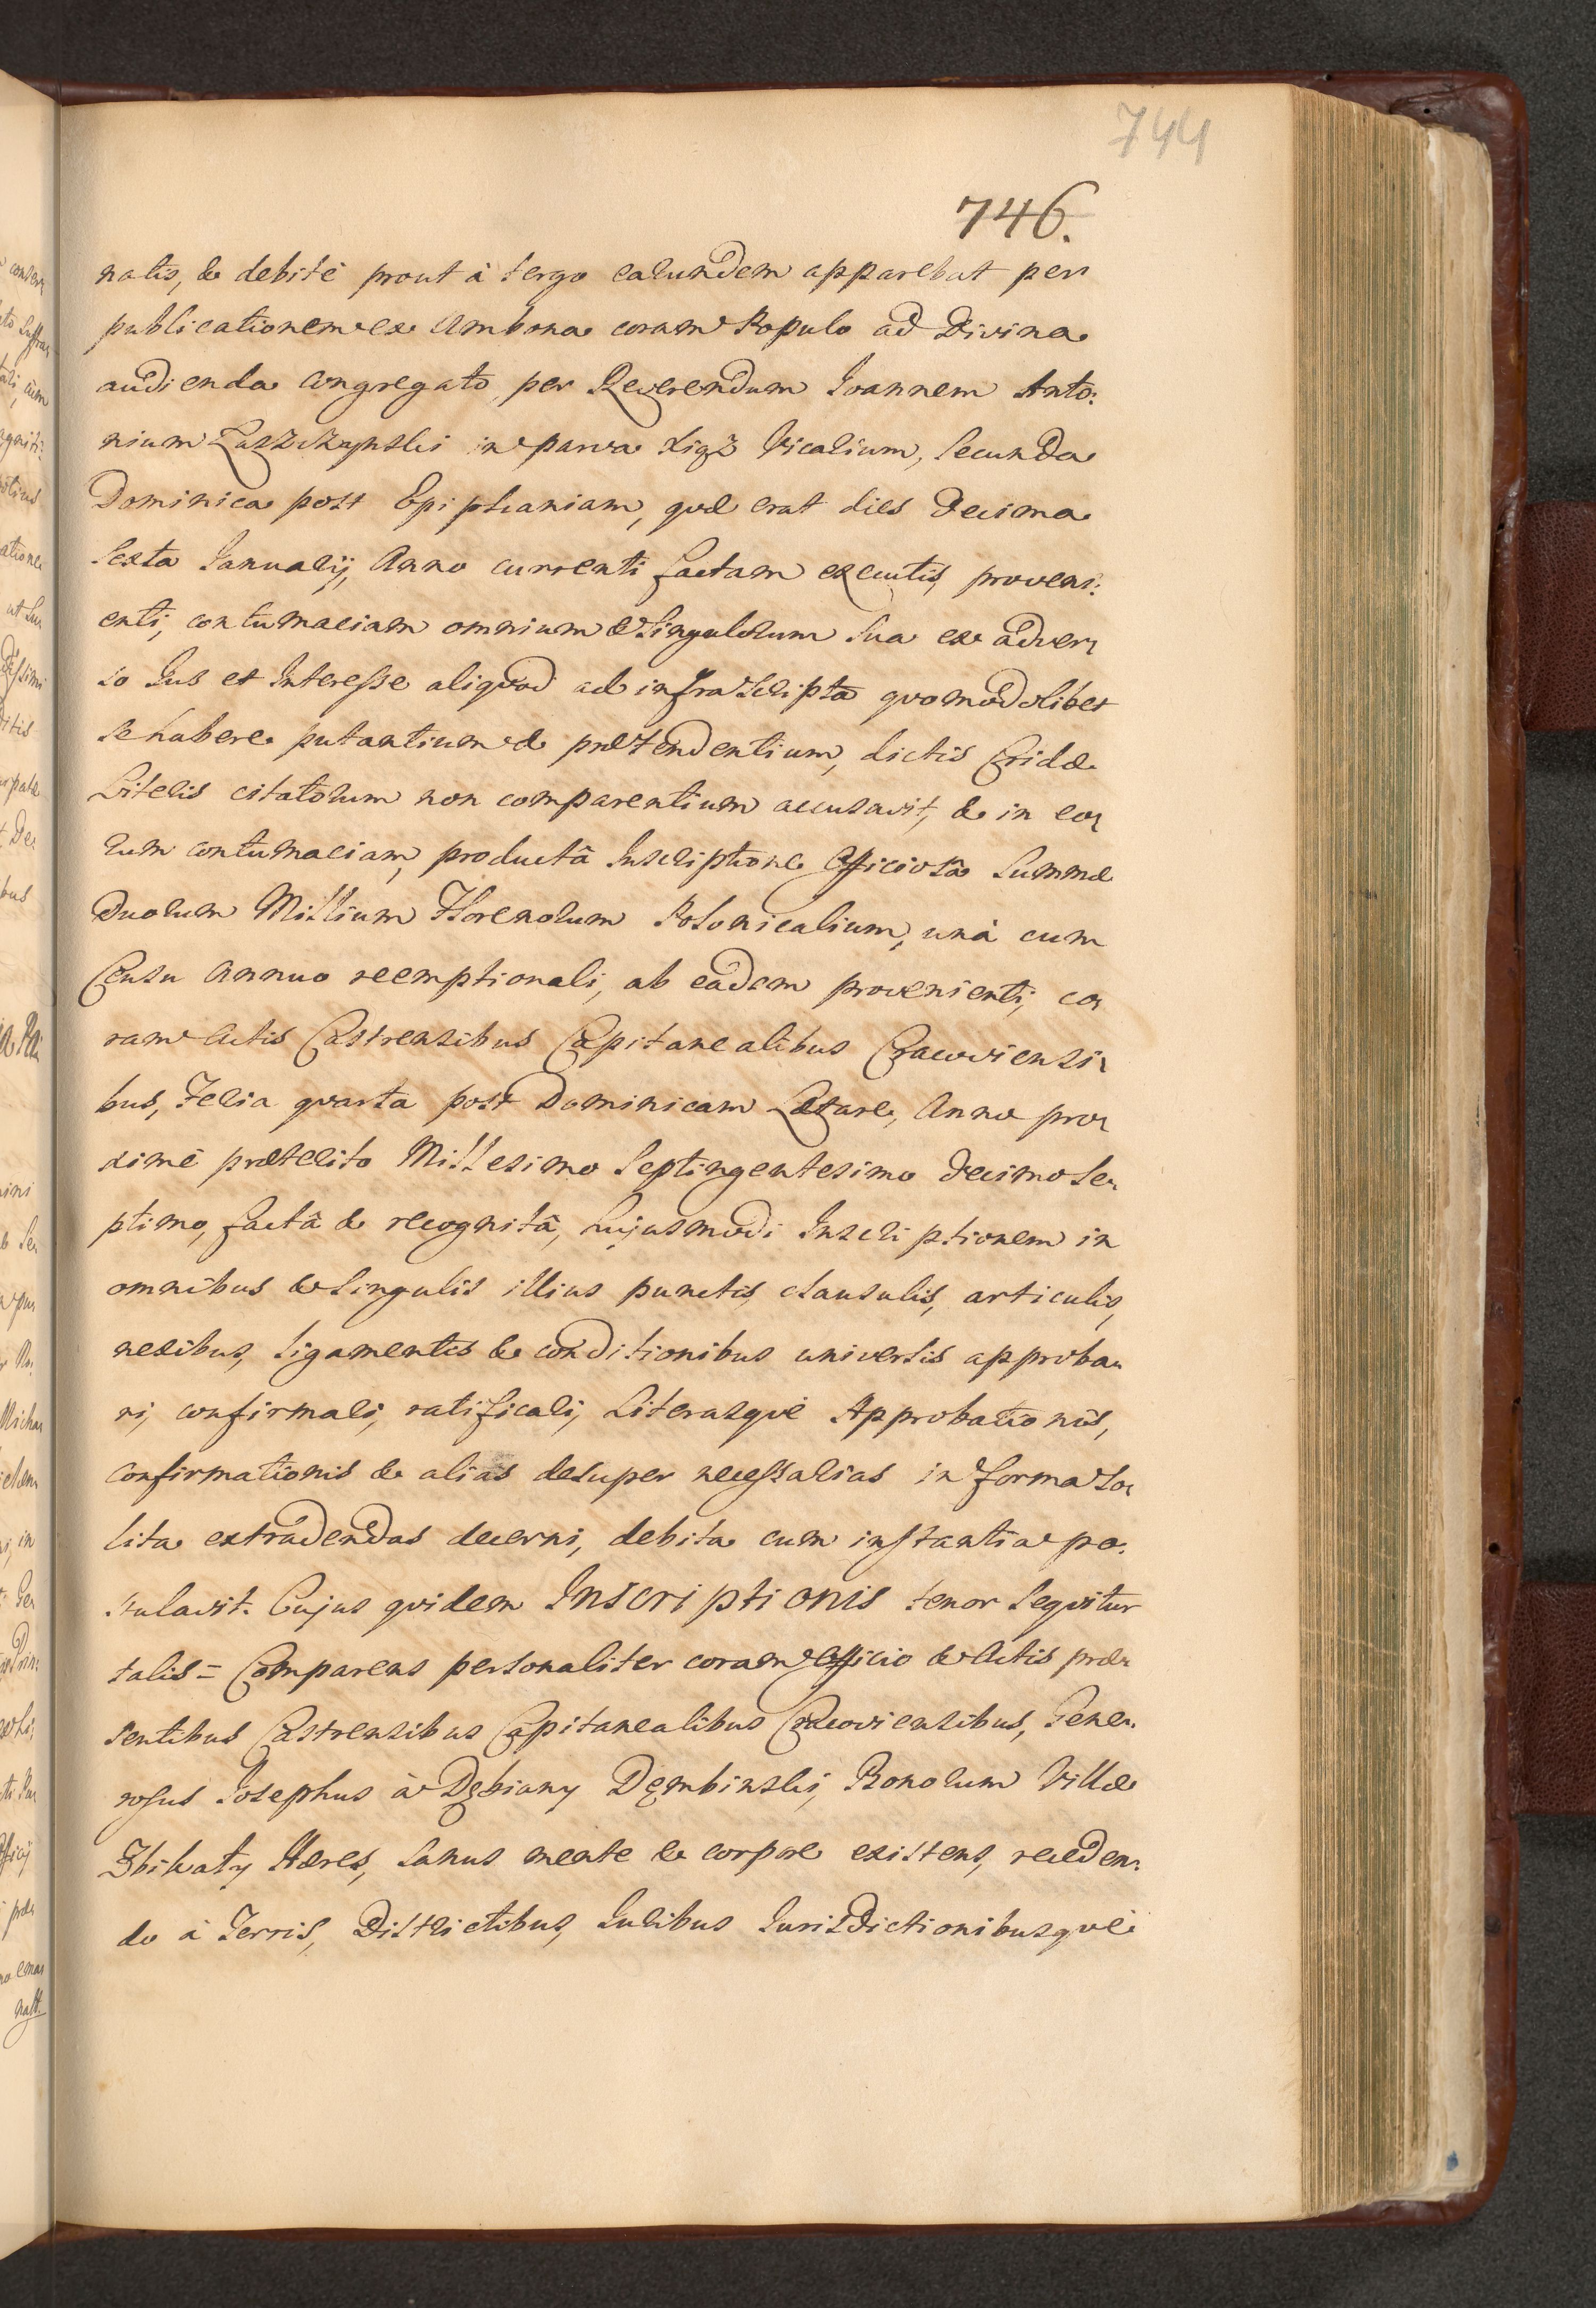 744
746.
natis, & debitè prout à tergo earundem apparebat per
publicationem ex Ambona coram Populo ad Divina
audienda congregato, per Reverendum Ioannem Anto:
nium Laszczynski in parva Xiąż Vicarium, Secunda
Dominica post Epiphaniam, quæ erat dies Decima
Sexta Ianuarij, Anno currenti factam executis, proveni:
enti, contumaciam omnium & Singulorum Sua ex adver
so Ius et Interesse aliquod ad infrascripta quomodolibet
se habere putantium & prætendentium, dictis Cridæ
Literis citatorum non comparentium accusavit, & in eo
rum contumaciam, productâ Inscriptione Officiosâ Summæ
Duorum Millium Florenorum Polonicalium, unà cum
Censu Annuo reemptionali, ab eâdem provenienti, co
ram Actis Castrensibus Capitanealibus Cracoviensi
bus, Feria quarta post Dominicam Lætare, Anno pro
ximè præterito Millesimo Septingentesimo Decimo Se
ptimo, factâ & recognitâ, hujusmodi Inscriptionem in
omnibus & Singulis illius punctis, clausulis, articulis,
nexibus, ligamentis & conditionibus universis approba
ri, confirmari, ratificari, Literasquè Approbationis,
Confirmationis & alias desuper necessarias in forma so
lita extradendas decerni, debita cum instantia po:
stulavit. Cujus quidem Inscriptionis tenor Sequitur
talis = Comparens personaliter coram Officio & Actis præ
sentibus Castrensibus Capitanealibus Cracoviensibus, Gene
rosus Iosephus à Dębiany Dęmbinski, Bonorum Villæ
Zbikaty Hæres, Sanus mente & corpore existens, receden
do à Terris, Districtibus, Iuribus Iurisdictionibusquè